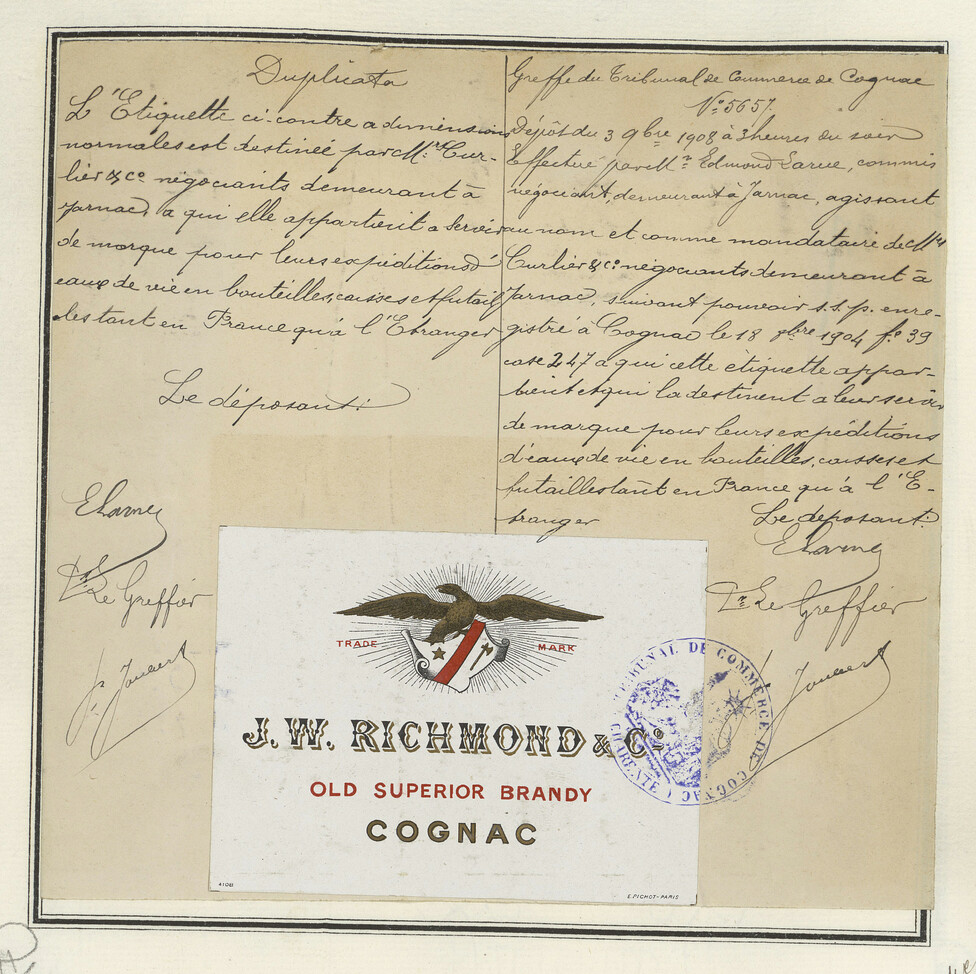 Duplicata
L'Etiquette ci-contre a dimensions
normales est destinée par M.rs Cur-
lier & Co négociants demeurant à
Jarnac, a qui elle appartient a servir
de marque pour leurs expéditions d'
eaux de vie en bouteilles, caisses et futail
les tant en France qu'à l'Etranger
Le déposant:
Pr Le Greffier
Greffe du Tribunal de Commerce de Cognac
No 5657.
Dépôt du 3 9bre 1908 à 3 heures du soir
Effectué par M.r Edmond Larue, commis
négociant, demeurant à Jarnac, agissant
au nom et comme mandataire de M.rs
Curlier & Co négociants demeurant à
Jarnac, suivant pouvoir s.s.p. enre-
gistré à Cognac le 18 8bre 1904 fo 39
case 247 a qui cette étiquette appar-
tient et qui la destinent a leur servir
de marque pour leurs expéditions
d'eaux de vie en bouteilles, caisses et
futailles tant en France qu'à l'E-
tranger
Le déposant:
Pr Le Greffier
TRADE MARK
J. W. RICHMOND & Co
OLD SUPERIOR BRANDY
COGNAC
41081
E. PICHOT-PARIS
TRIBUNAL DE COMMERCE DE COGNAC
(CHARENTE)